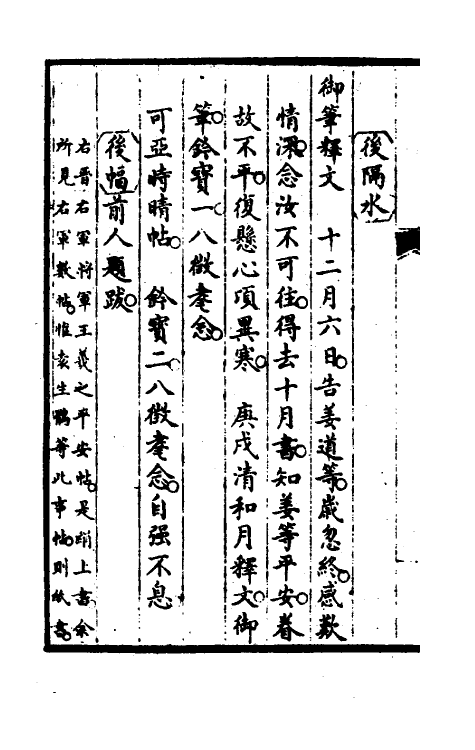 後隔水
御筆釋文　十二月六日告姜道等歲忽終感歎
情深念汝不可往得去十月書知姜等平安眷
故不平復懸心項異寒　庚戌清和月釋文御
筆鈐寶一八徵耄念
可亞時晴帖　鈐寶二八徵耄念自强不息
後幅前人題跋
右晉右軍將軍王羲之平安帖是蹋上書余
所見右軍數帖惟袁生鸎等此事帖則紙書